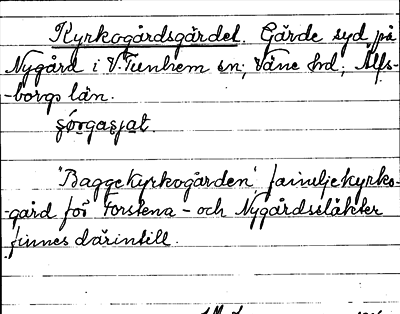 Kyrkogårdsgärdet. Gärde syd på
Nygård i V. Tunhem sn; Väne hd; Älfs-
-borgs län.
şǫrgaşjat.
'Bagge kyrkogården', familjekyrko-
-gård för Forstena- och Nygårdssläkter
finnes därintill.